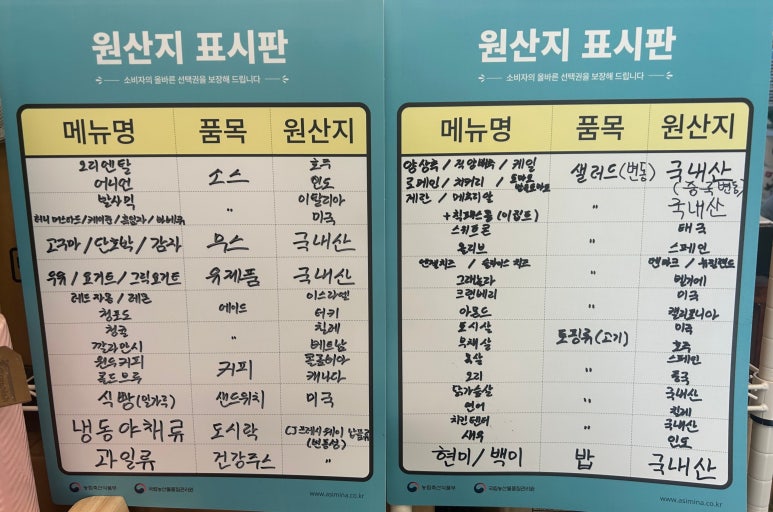 원산지 표시판
소비자의 올바른 선택권을 보장해 드립니다
메뉴명 품목 원산지
오리엔탈 소스 호주
어니언 인도
발사믹 〃 이탈리아
허니 머스타드/케이준/흑임자/ 미국
고구마/단호박/감자 무스 국내산
우유/요거트/그릭요거트 유제품 국내산
레드자몽/레몬 에이드 이스라엘
청포도 터키
청귤 〃 칠레
깔라만시 베트남
원두커피 커피 콜롬비아
콜드브루 캐나다
식빵(밀가루) 샌드위치 미국
냉동야채류 도시락 (CJ프레시웨이 납품류
(변동성)
과일류 건강주스 〃
농림축산식품부 국립농산물품질관리원
www.asimina.co.kr
원산지 표시판
소비자의 올바른 선택권을 보장해 드립니다
메뉴명 품목 원산지
양상추/적양배추/케일 샐러드(변동) 국내산
로메인/치커리/토마토 (중국변동)
방울토마토
계란/메추리알 〃 국내산
+힉피스콩(이집트)
스위트콘 〃 태국
올리브 스페인
연성치즈/슬라이스치즈 〃 덴마크/뉴질랜드
그래놀라 벨기에
크랜베리 〃 미국
아몬드 캘리포니아
토시살 토핑류(고기) 미국
부채살 호주
목살 〃 스페인
오리 중국
닭가슴살 〃 국내산
연어 칠레
치킨텐더 〃 국내산
새우 인도
현미/백미 밥 국내산
농림축산식품부 국립농산물품질관리원
www.asimina.co.kr